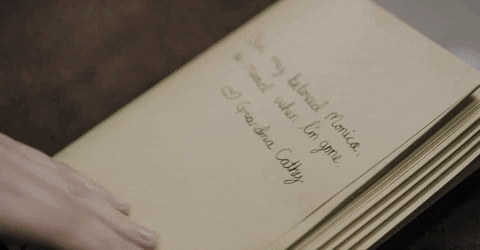 For my beloved Monica,
to read when I'm gone.
♡ Grandma Cathy